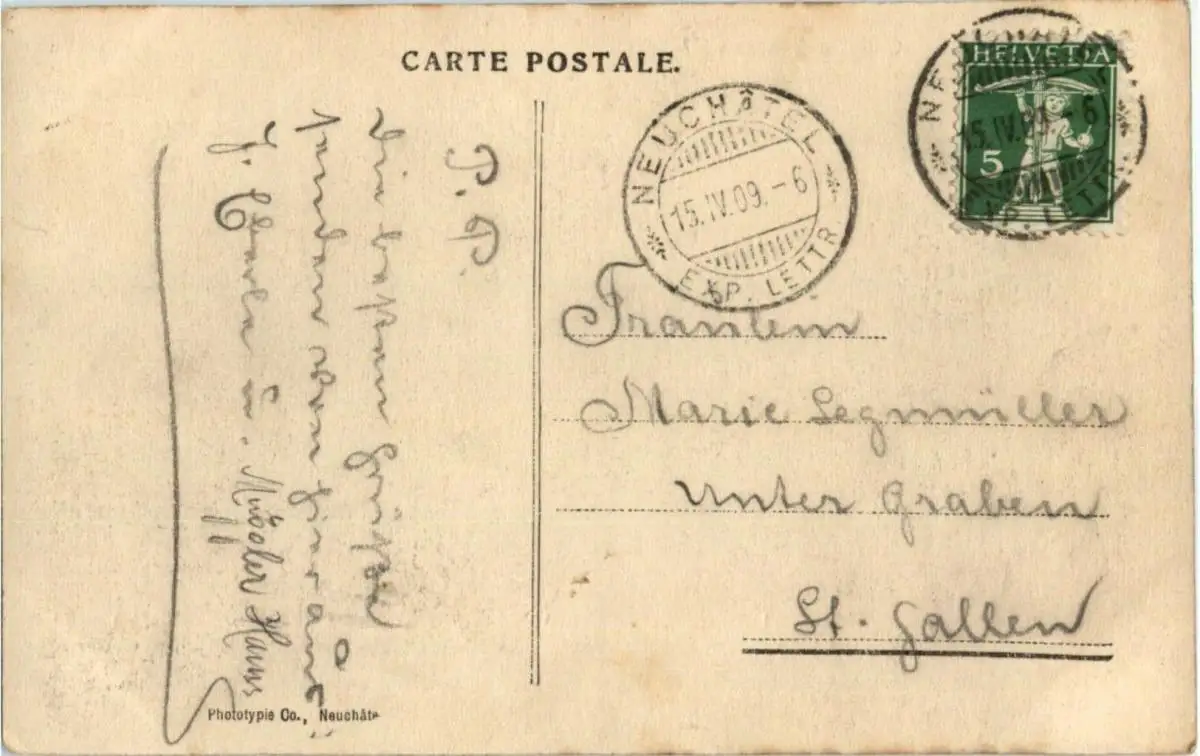 CARTE POSTALE.
HELVETIA
5
NEUCHÂTEL
15.IV.09.-6
EXP. LETTR.
NEUCHÂTEL
15.IV.09.-6
EXP. LETTR.
P. P.
Die besten Grüße
senden von hier aus
J. u. Müggler Hans
Fräulein
Marie Legmüller
Unter Graben
St. Gallen
Phototypie Co., Neuchâte